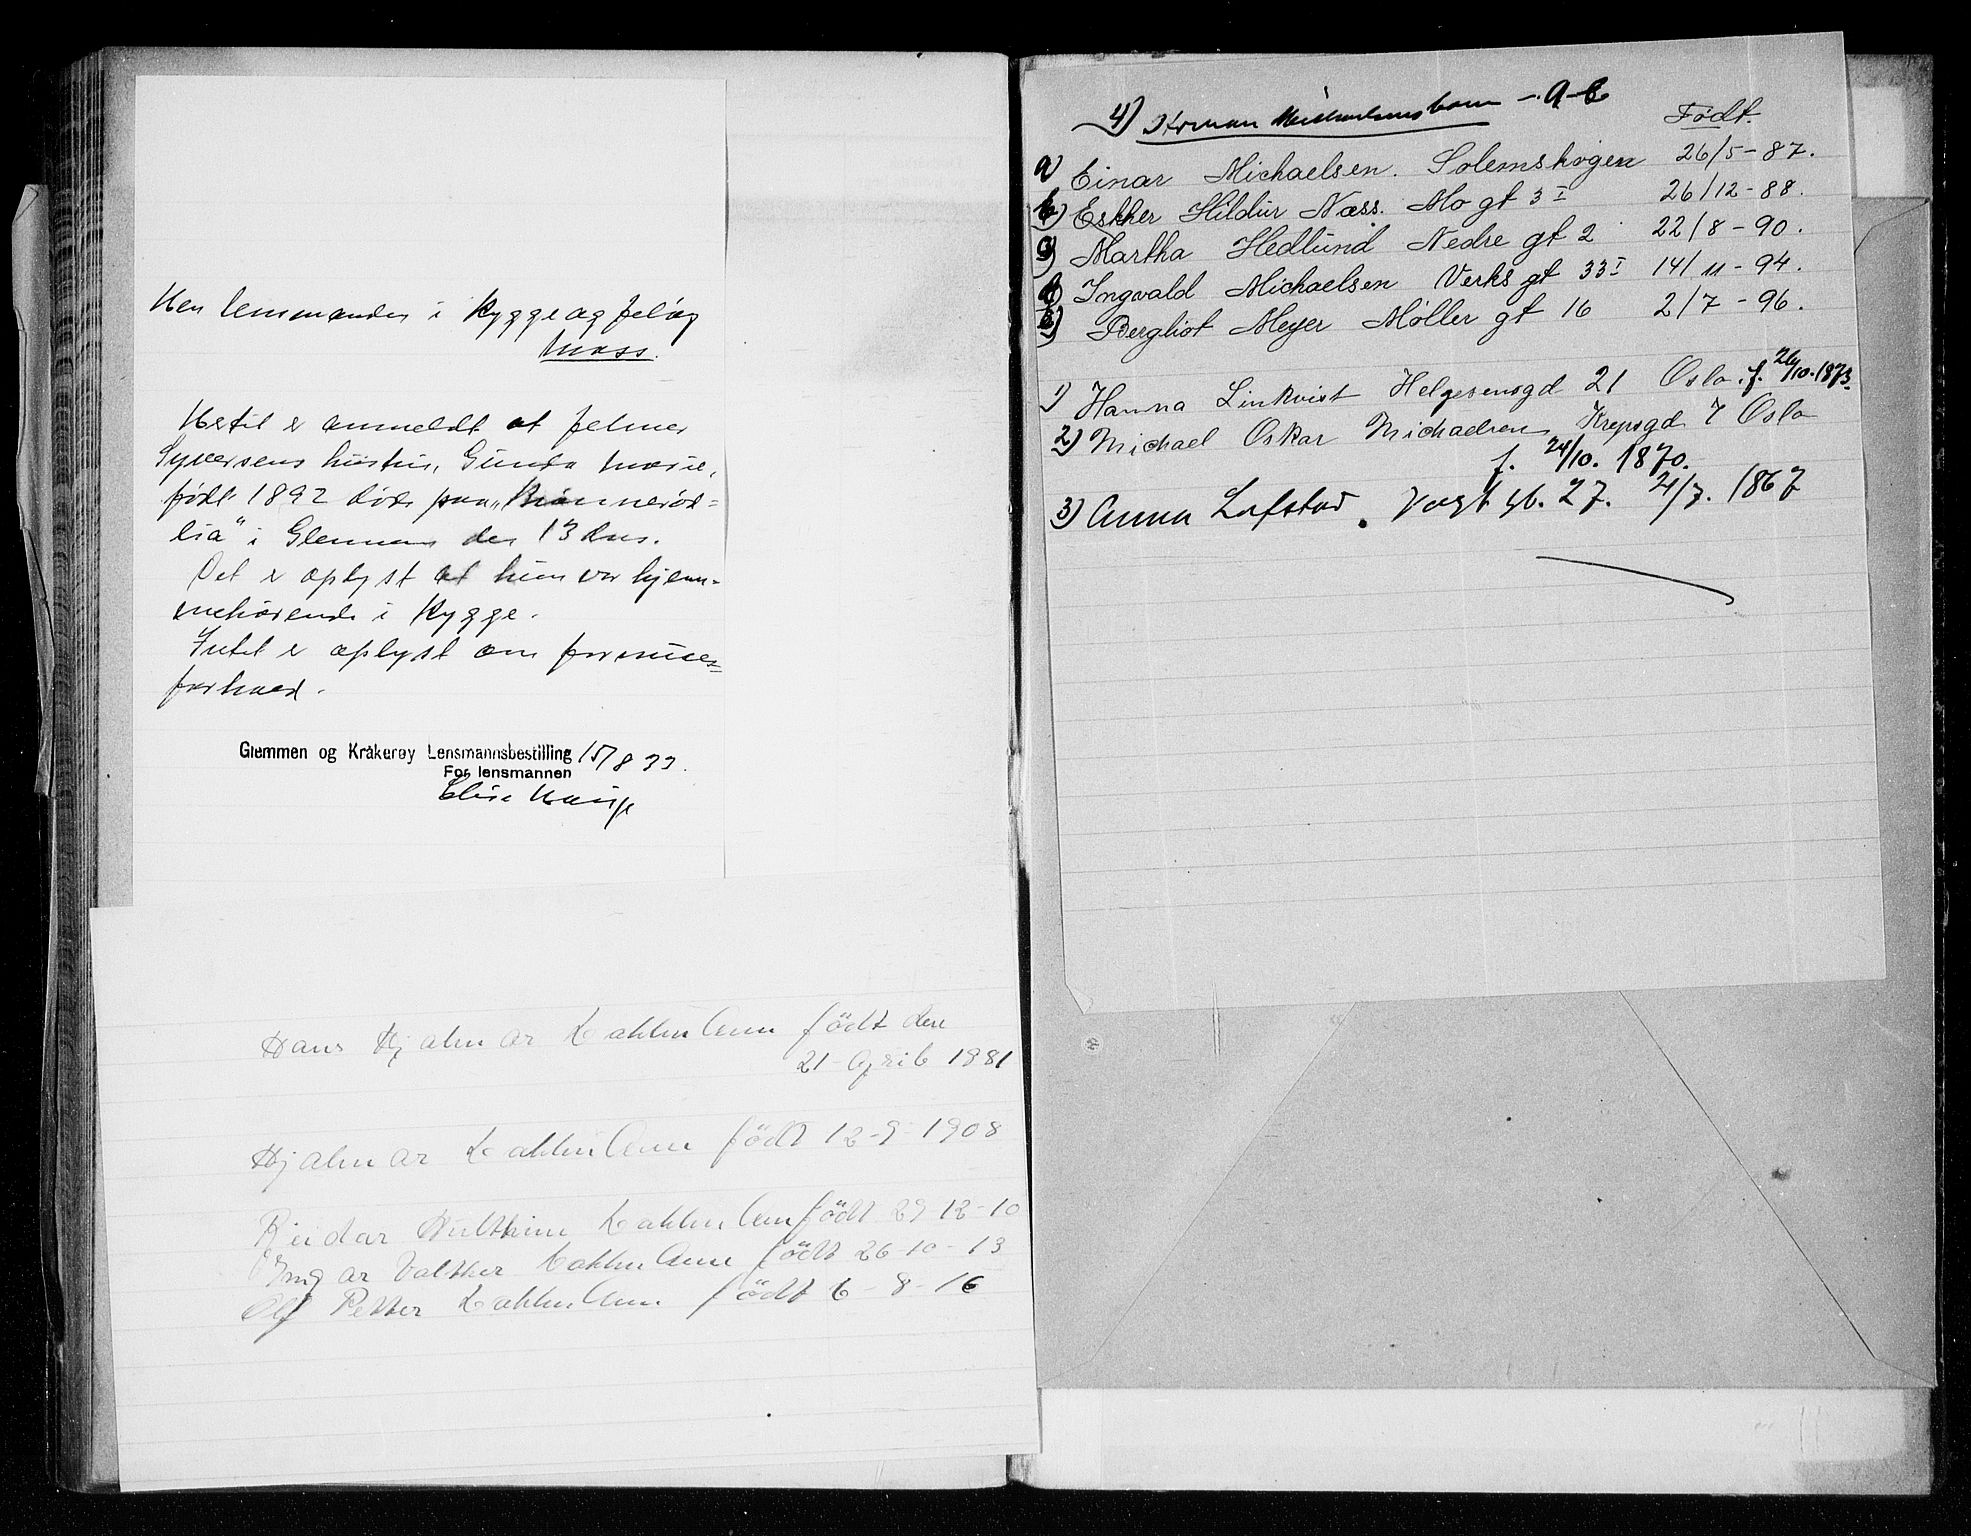 Herr lensmanden i Rygge og Jeløy
Moss.
Hertil er anmeldt at Jelmer
Syversens hustru, Gunda Marie,
født 1892 døde paa „Brønnerød-
lia" i Glemmen den 13 ds.
Det er oplyst at hun var hjem-
mehørende i Rygge.
Intet er oplyst om formues-
forhold.
Glemmen og Kråkerøy Lensmannsbestilling 15/8 33.
For lensmannen
Elise Hauge
Hans Hjalmar født den
21 April 1881
Hjalmar født 12-9-1908
Reidar født 29-12-10
Ingar Valther født 26-10-13
Olf Petter født 6-8-16
4) Herman Michaelsens barn - a-e
Født.
a) Einar Michaelsen. Solemskogen 26/5-87.
b) Esther Hildur Næss. Mo gt 3 I 26/12-88.
c) Martha Hedlund Nedre gt 2 22/8-90.
d) Ingvald Michaelsen Verks gt 33 I 14/11-94.
e) Bergliot Meyer Møller gt 16 2/7-96.
1) Hanna Linkvist Helgesensgd 21 Oslo. f. 26/10.1873.
2) Michael Oskar Michaelsen Krepsgd 7 Oslo
f. 24/10. 1870.
3) Anna Lofstad. Vogt gt. 27. 21/7. 1867